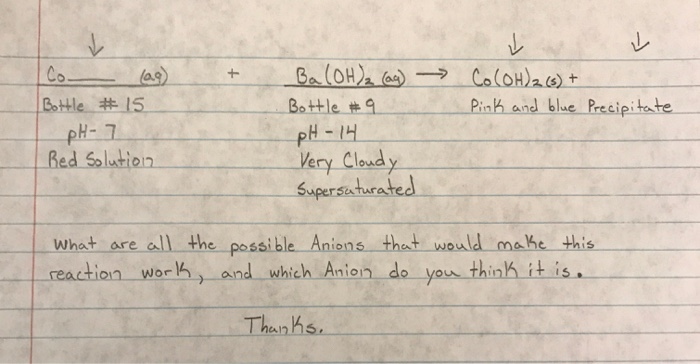 ↓ ↓ ↓
Co____ (aq) + Ba(OH)₂ (aq) → Co(OH)₂(s) +
Bottle # 15 Bottle # 9 Pink and blue Precipitate
pH- 7 pH - 14
Red Solution Very Cloudy
Supersaturated
What are all the possible Anions that would make this
reaction work, and which Anion do you think it is.
Thanks.